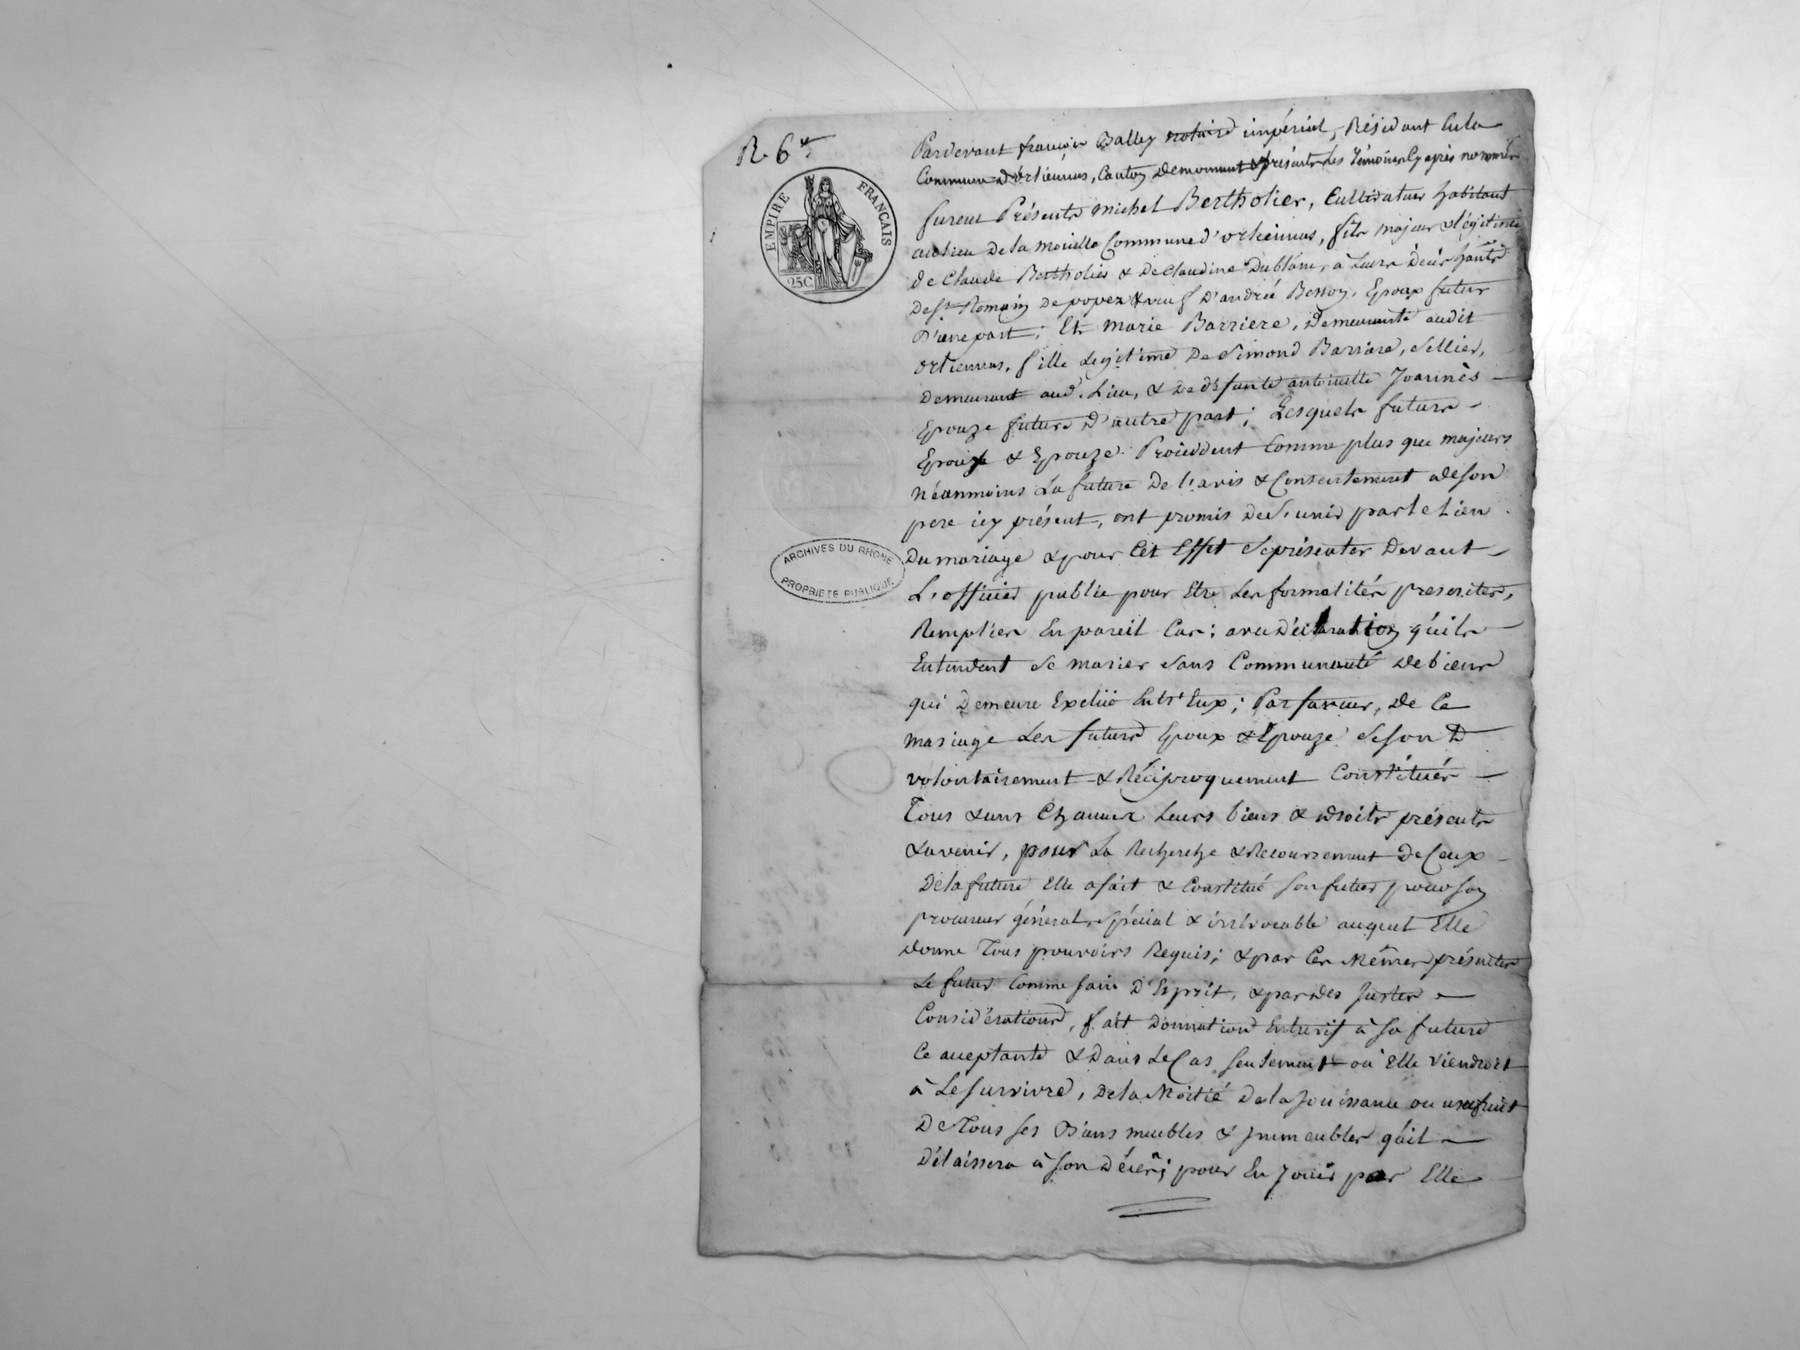 R. 6e
EMPIRE FRANÇAIS
25C
Pardevant françois Balley notaire impérial, Résidant en la
Commune d'Ortiennas, Canton de mornant & présents les témoins cy après nommés
furent Présents michel Bertholier, Cultivateur habitant
au lieu de la Commune d'ortiennas, fils majeur & légitime
de Claude Bertholier & de Claudine Dublanc, à leurs décès
de St. Romain de popez & veuf d'andrée Besson, Epoux futur
D'une part; Et marie Barriere, Demeurante audit
ortiennas, fille Legitime De Simond Barriere, Sellier,
Demeurant aud. Lieu, & de défunte antoinette Joannès
Epouze future D'autre part; Lesquels futurs
Epoux & Epouze Procèdent Comme plus que majeurs
Néanmoins la future De l'avis & Consentement de son
pere icy présent, ont promis de S'unir par le Lien
Du mariage & pour Cet Effet Se présenter Devant
L'officier public pour Etre Les formalités prescrites,
Remplies En pareil Cas; avec Déclaration qu'ils
Entendent Se marier Sans Communauté De biens
qui Demeure Exclüe Entr'Eux; Par faveur, De Ce
mariage Les futurs Epoux & Epouze Se Sont
volontairement & Réciproquement Constitués
Tous & uns Chacuns Leurs biens & droits présents
& avenir, pour La Recherche & Recouvrement De Ceux
De la future Elle a fait & Constitué Son futur pour Son
procureur général, Spécial & irrévocable auquel Elle
donne Tous pouvoirs Requis; & par Ces Mêmes présentes
Le futur Comme Sain D'Esprit, & par des Justes
Considérations, fait Donnation Entrevif à Sa future
Ce aceptante & Dans Le Cas Seulement où Elle Viendroit
à Le Survivre, De la Moitié De la Jouissance ou usufruit
De Tous Ses Biens meubles & Immeubles qu'il
Délaissera à Son Décès; pour En Jouir par Elle
ARCHIVES DU RHONE
PROPRIETE PUBLIQUE